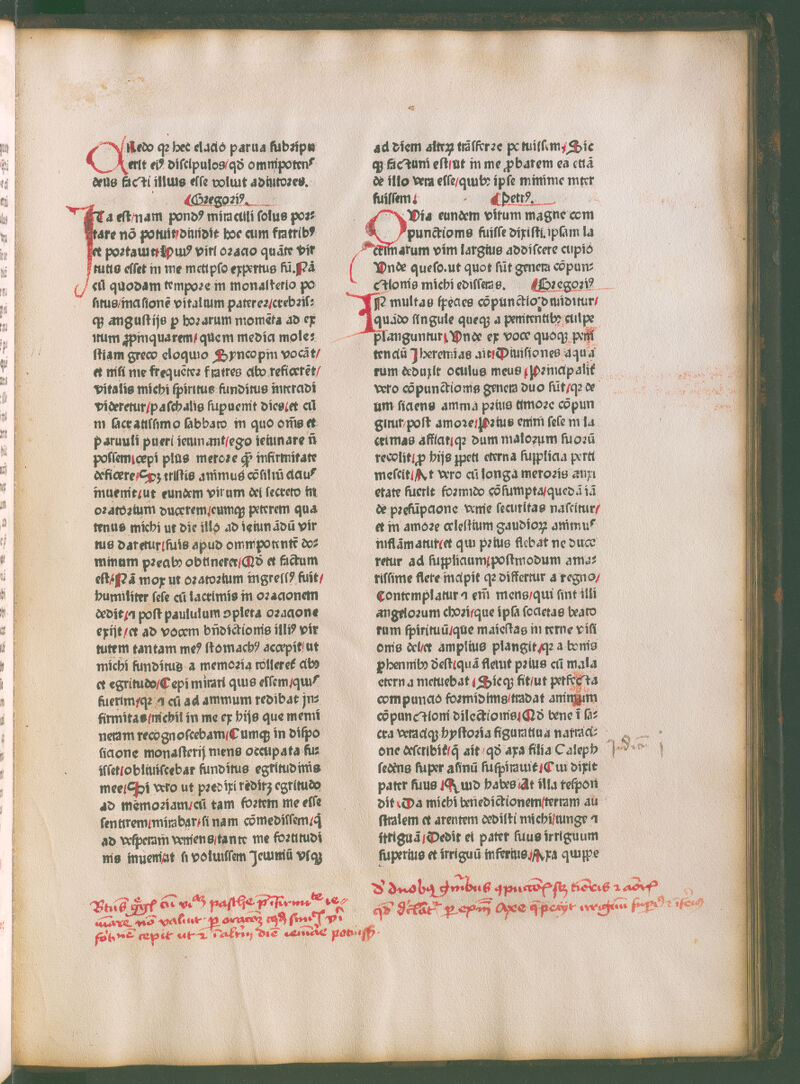 Qiledo qꝛ hec elatio parua subripu
erit eiꝰ discipulos/qd̄ omnipotenˢ
deus facti illius esse voluit adiutores.
Gregoriꝰ.
Ita est/nam pondꝰ miraculi solus poꝛ⸗
tare nō potuit/diuidit hoc cum fratribꝰ
et portauit/Huiꝰ viri oracio quāte vir
tutis esset in me metipso expertus sū.Nā
cū quodam tempore in monasterio po
situs/incisionē vitalium paterer/crebris⸗
qꝫ angustijs ꝑ horarum momēta ad ex
itum ꝓpinquarem/quem medici mole⸗
stiam greco eloquio Syncopin vocāt/
et nisi me frequēter fratres cibo reficerēt/
vitalis michi spiritus funditus intercidi
videretur/paschalis supuenit dies/et cū
in sacratissimo sabbato in quo om̄s et
paruuli pueri ieiunant/ego ieiunare ñ
possem/cepi plus merore qꝫ infirmitate
deficere/Sꝫ tristis animus cōsiliū citiꝰ
inuenit/ut eundem virum dei secreto in
oratorium ducerem/eumqꝫ peterem qua
tenus michi ut die illo ad ieiunādū vir
tus daretur/suis apud omnipotentē do⸗
minum precibꝰ obtineret/Qd̄ et factum
est/Nā mox ut oratorium ingressꝰ fuit/
humiliter sese cū lacrimis in oracionem
dedit/⁊ post paululum ꝯpleta oracione
exijt/et ad vocem bn̄dictionis illiꝰ vir
tutem tantam meꝰ stomachꝰ accepit/ut
michi funditus a memoria tolleret cibꝰ
et egritudo/Cepi mirari quis essem/quiˢ
fuerim/qꝛ ⁊ cū ad animum redibat in⸗
firmitas/nichil in me ex hijs que memi
neram recognoscebam/Cumqꝫ in dispo
sicione monasterij mens occupata fu⸗
isset/obliuiscebar funditus egritudinis
mee/Si vero ut predixi rediret egritudo
ad memoriam/cū tam fortem me esse
sentirem/mirabar/si nam cōmedissem/q̄
ad vesperam veniens/tante me fortitudi
nis inueni/ut si voluissem Ieiuniū vsqꝫ
ad diem alterꝫ trāsferre potuissem/Sic
qꝫ factum est/ut in me ꝓbarem ea etiā
de illo vera esse/quibꝰ ipse minime inter
fuissem/ Petrꝰ.
QVia eundem virum magne com
punctionis fuisse dixisti/ipsam la
crimarum vim largius addiscere cupio
Vnde queso.ut quot sūt genera cōpun⸗
ctionis michi edisseras. Gregoriꝰ
IN multas species cōpunctio diuiditur/
quādo singule queqꝫ a penitentibꝰ culpe
planguntur/Vnde ex voce quoqꝫ peni
tenciū Iheremias ait/Diuisiones aquā
rum deduxit oculus meus/Principalit̄
vero cōpunctionis genera duo sūt/qꝛ de
um siciens anima prius timore cōpun
gitur/post amore/Prius enim sese in la
crimas afficit/qꝛ dum malorum suorū
recolit/ꝓ hijs ꝑpeti eterna supplicia perti
mescit/At vero cū longa meroris anxi
etate fuerit formido cōsumpta/quedā iā
de presūpcione venie securitas nascitur/
et in amore celestium gaudioꝝ animuˢ
inflāmatur/et qui prius flebat ne duce
retur ad supplicium/postmodum ama⸗
rissime flere incipit qꝛ differtur a regno/
Contemplatur ⁊ eñ mens/qui sint illi
angelorum chori/que ipsa societas beato
rum spirituū/que maiestas in terne visi
onis dei/et amplius plangit/qꝛ a bonis
ꝑhennibꝰ deest/quā fleuit prius cū mala
eterna metuebat/Sicqꝫ fit/ut perfecta
compunctio formidinis/tradat animum
cōpunctioni dilectionis/Qd̄ bene ī sa⸗
cra veraciqꝫ hystoria figuratiua narraci⸗
one describit/q̄ ait qd̄ axa filia Caleph
sedens super asinū suspirauit/Cui dixit
pater suus/Quid habes/At illa respon
dit/Da michi benedictionem/terram au
stralem et arentem dedisti michi/iunge ⁊
irriguā/Dedit ei pater suus irriguum
superius et irriguū inferius/Axa quippe
Iudicū j